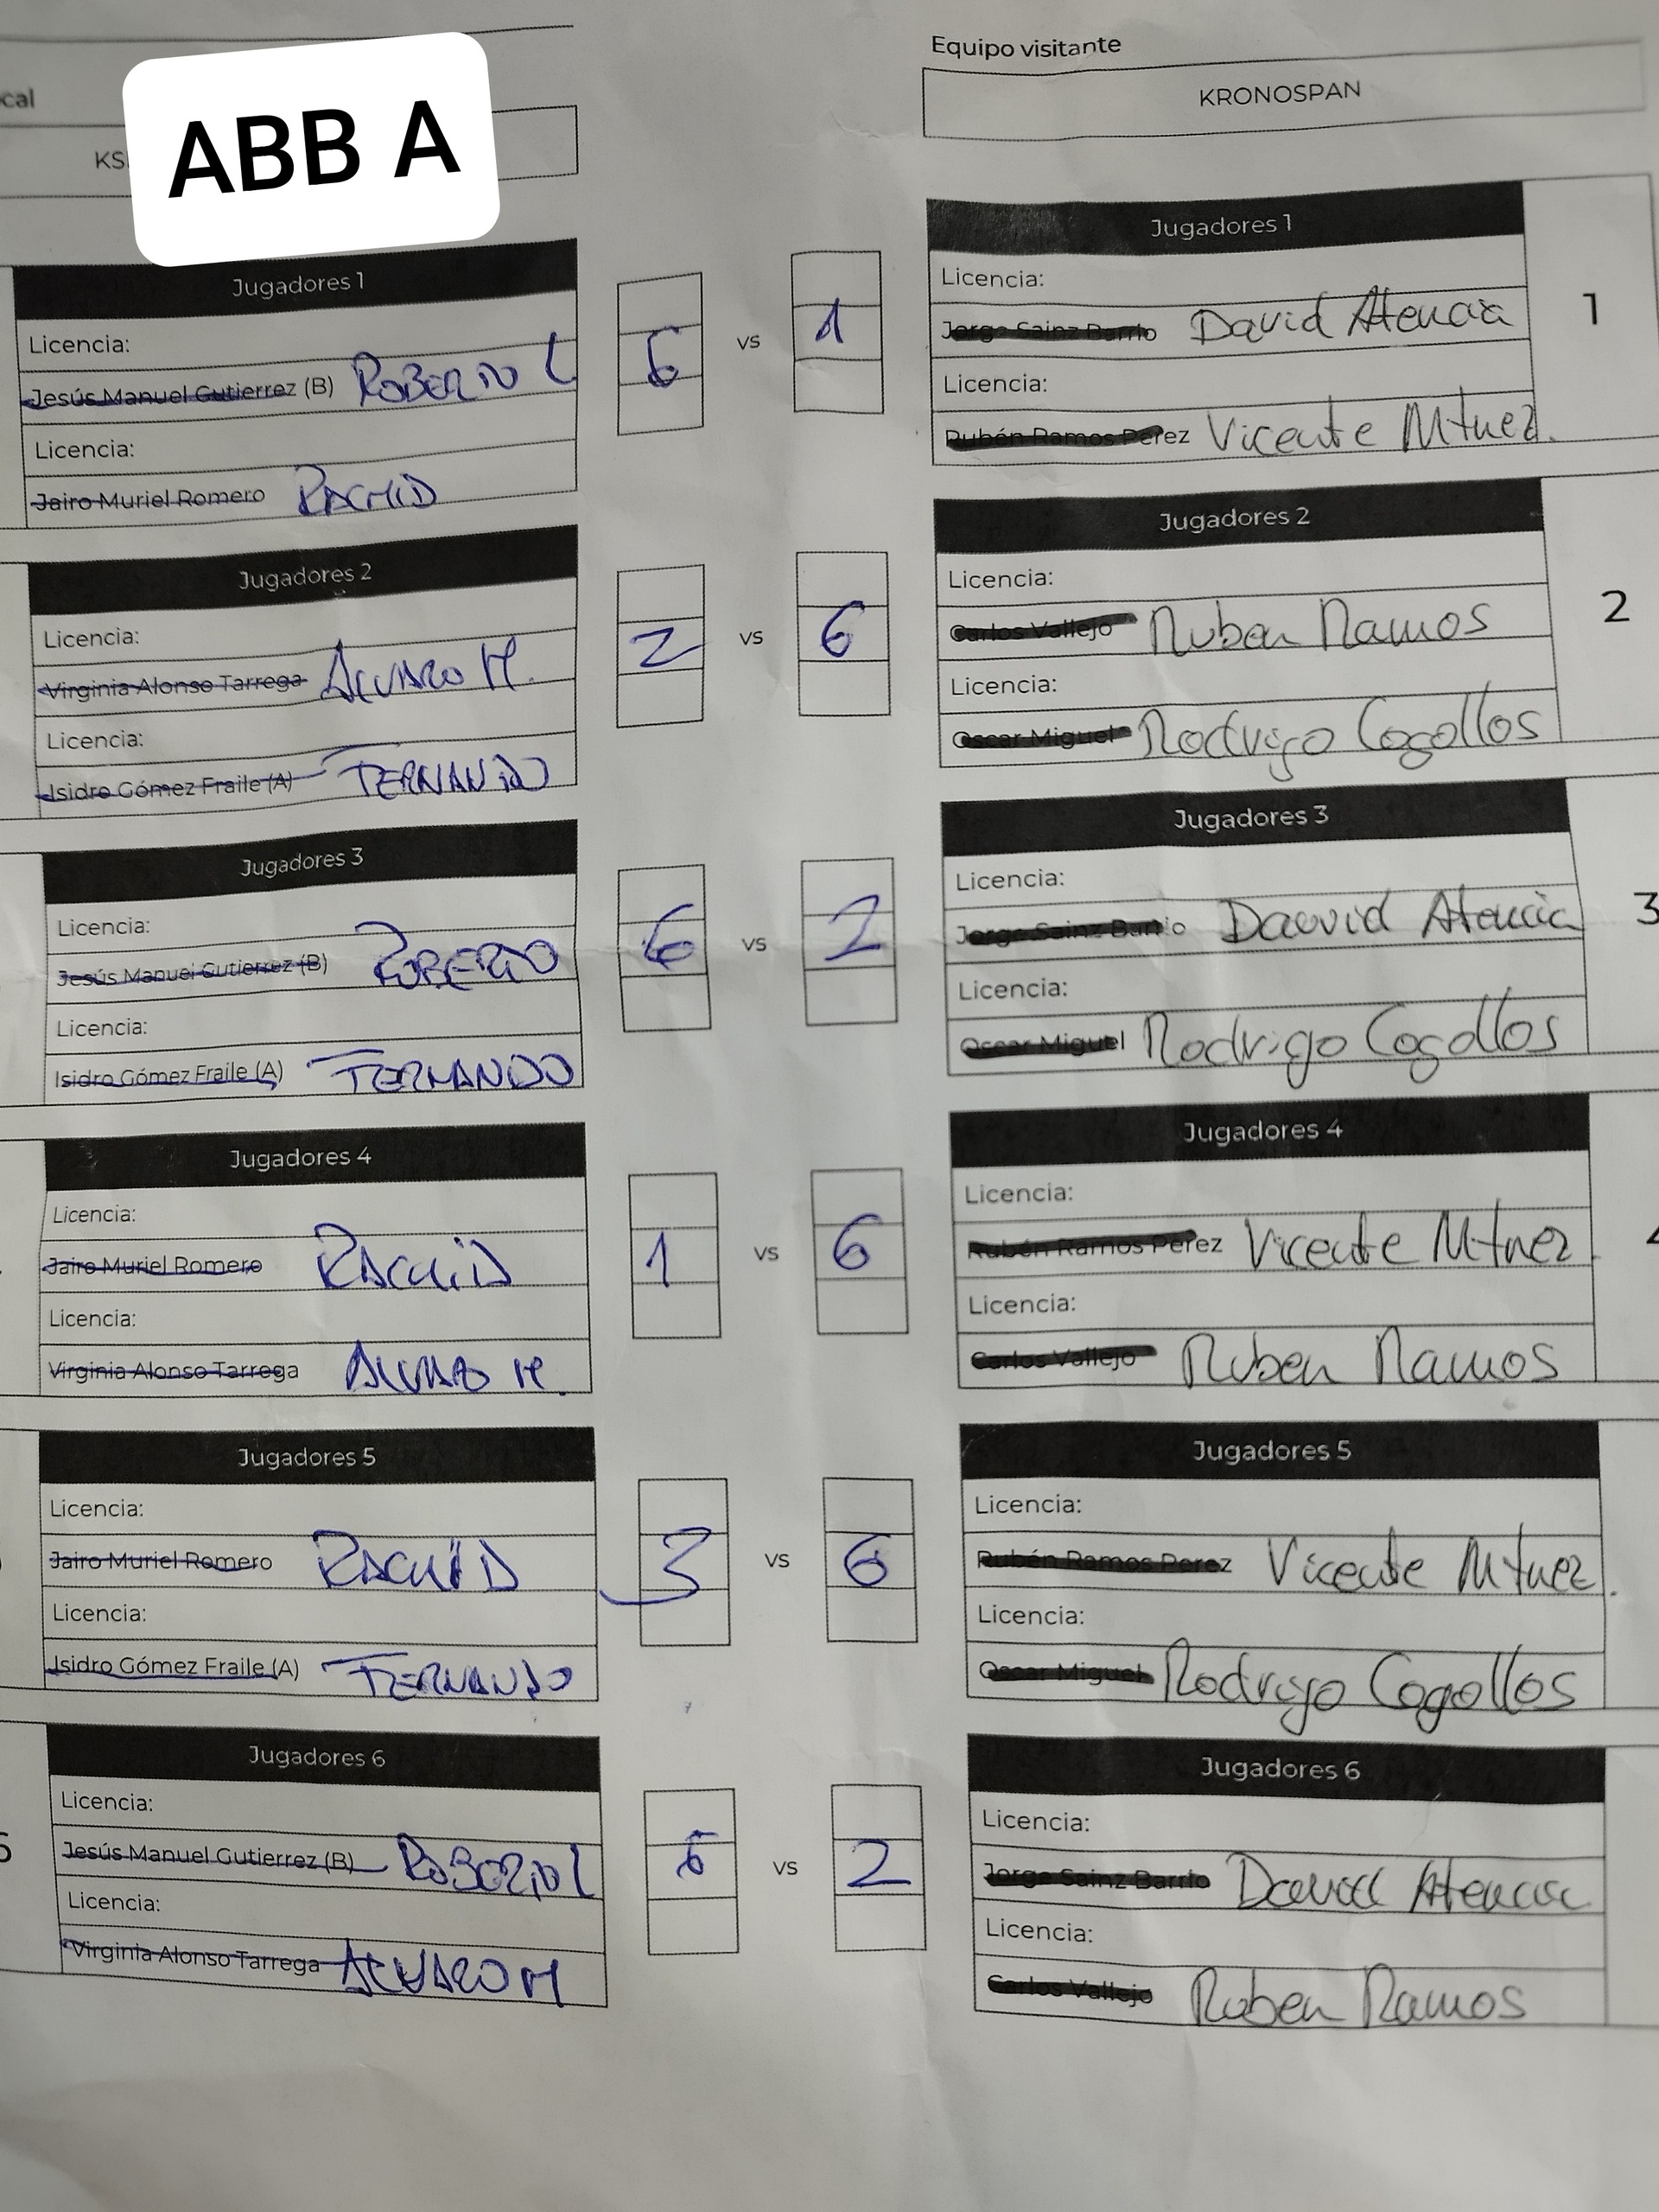 Equipo visitante
cal
ABB A
KRONOSPAN
KS
Jugadores 1
Licencia:
Jesús Manuel Gutierrez (B) ROBERTO L
Licencia:
Jairo Muriel Romero RACHID
6 vs 1
Jugadores 1
Licencia:
Jorge Sainz Barrio David Atencia
Licencia:
Rubén Ramos Perez Vicente Mtnez.
1
Jugadores 2
Licencia:
Virginia Alonso Tarrega ALVARO M.
Licencia:
Isidro Gómez Fraile (A) FERNANDO
2 vs 6
Jugadores 2
Licencia:
Carlos Vallejo Ruben Ramos
Licencia:
Oscar Miguel Rodrigo Cogollos
2
Jugadores 3
Licencia:
Jesús Manuel Gutierrez (B) ROBERTO
Licencia:
Isidro Gómez Fraile (A) FERNANDO
6 vs 2
Jugadores 3
Licencia:
Jorge Sainz Barrio Daavid Atencia
Licencia:
Oscar Miguel Rodrigo Cogollos
3
Jugadores 4
Licencia:
Jairo Muriel Romero RACHID
Licencia:
Virginia Alonso Tarrega ALVARO M.
1 vs 6
Jugadores 4
Licencia:
Rubén Ramos Perez Vicente Mtnez.
Licencia:
Carlos Vallejo Ruben Ramos
Jugadores 5
Licencia:
Jairo Muriel Romero RACHID
Licencia:
Isidro Gómez Fraile (A) FERNANDO
3 vs 6
Jugadores 5
Licencia:
Rubén Ramos Perez Vicente Mtnez.
Licencia:
Oscar Miguel Rodrigo Cogollos
Jugadores 6
Licencia:
Jesús Manuel Gutierrez (B) ROBERTO L
Licencia:
Virginia Alonso Tarrega ALVARO M
6 vs 2
Jugadores 6
Licencia:
Jorge Sainz Barrio David Atencia
Licencia:
Carlos Vallejo Ruben Ramos